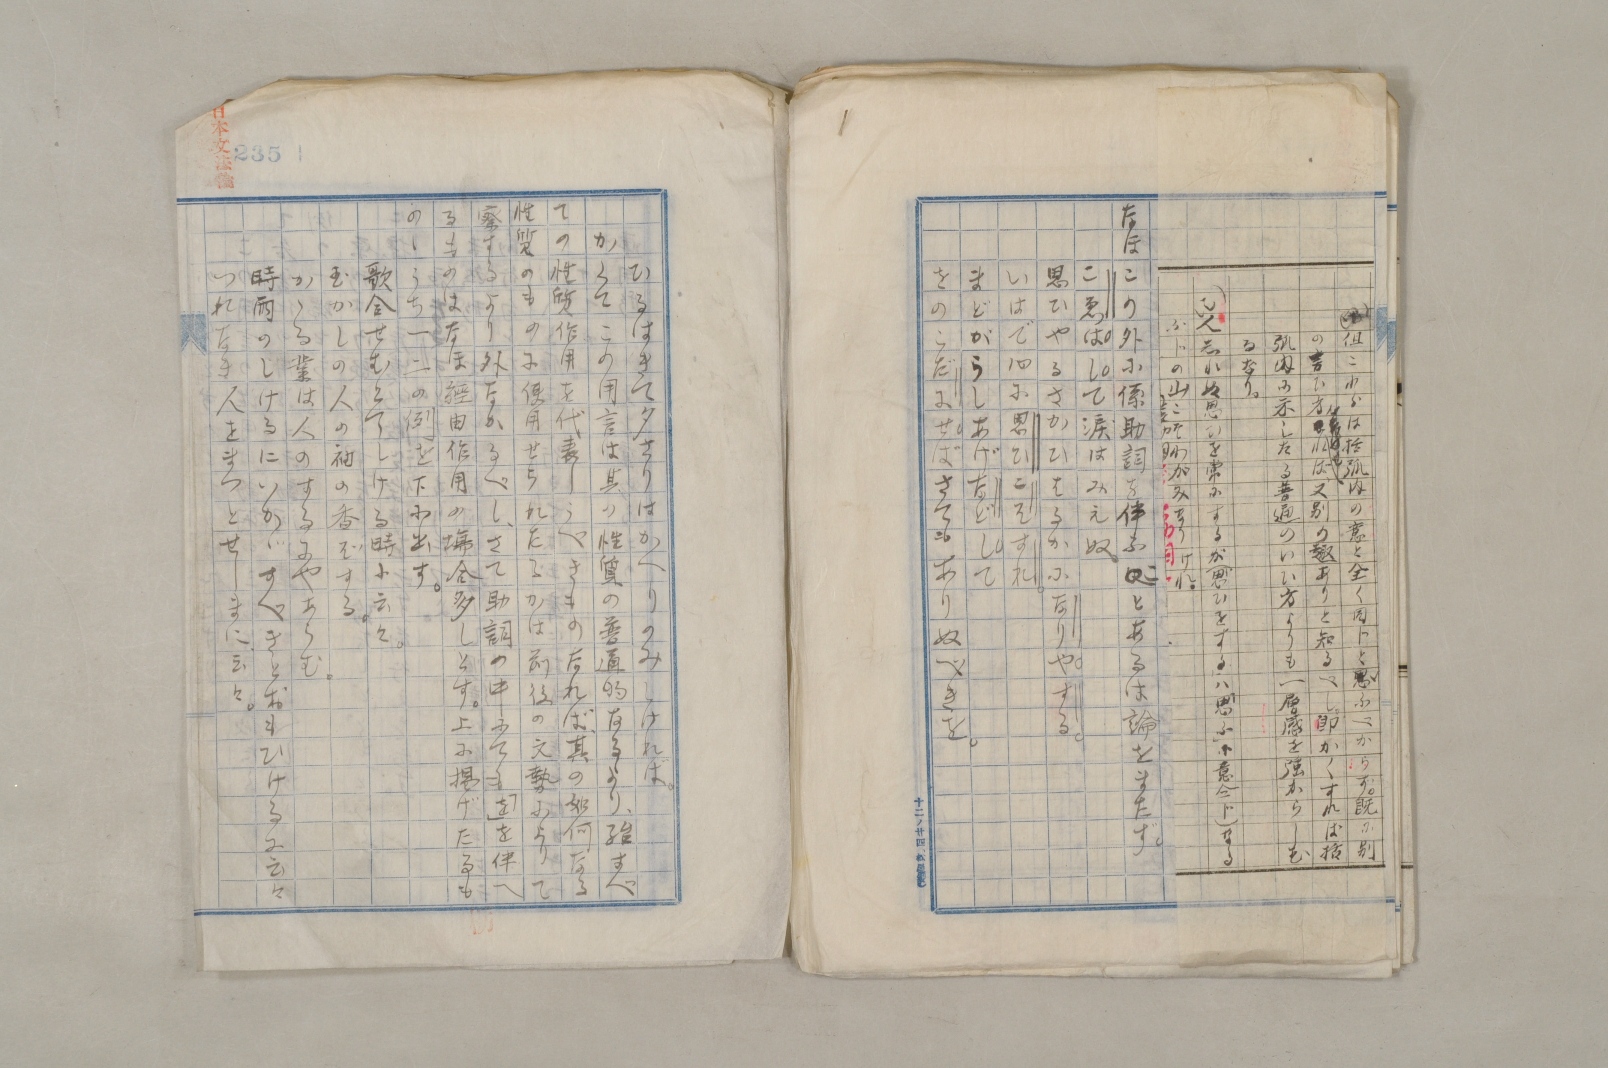 但これらは括弧内の意と全く同じと思ふべからず。既に別
の言ひ方なれば又別の趣ありと知るべし。即かくすれば括
弧内に示したる普通のいひ方よりも一層感を強からしむ
るなり。
人しれぬ思ひを常にするが(思ひをするハ思ふの意ト)なる
ふじの山こそわがみなりけれ。
なほこの外に係助詞を伴ふことあるは論をまたず。
こゑはして涙はみえぬ
思ひやるさかひはるかになりやする。
いはで心に思ひこそすれ。
まどがらしあげなどして
をのこだにせばさてもありぬべきを。
ひるはきて夕さりはかへりのみしければ。
かくてこの用言は其の性質の普通的なるより、殆すべ
ての性質作用を代表しうべきものなれば、其の如何なる
性質のものに使用せられたるかは前後の文勢によりて
察するより外なかるべし、さて助詞の中にても「を」を伴へ
るものはなほ経由作用の場合多しとす。上に掲げたるも
のゝうち一二の例を下に出す。
歌合せむとてしける時に云々。
むかしの人の袖の香ぞする。
かゝる業は人のするにやあらむ。
時雨のしけるにいかゞすべきとおもひける に云々
つれなき人をまつとせしまに云々。
日本文法論
235
十二ノ廿四